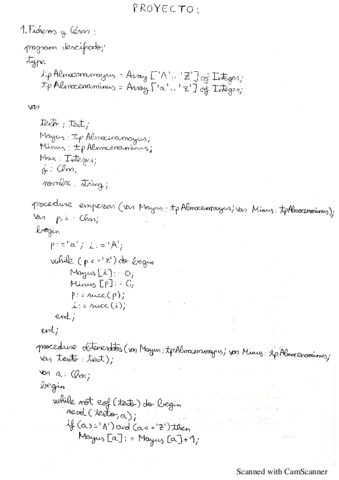 PROYECTO:
1. Ficheros y César:
program descifrado;
type
tpAlmacenamayus = Array ['A'..'Z'] of Integer;
tpAlmacenaminus = Array ['a'..'z'] of Integer;
var
texto: text;
Mayus: tpAlmacenamayus;
Minus: tpAlmacenaminus;
Max: Integer;
j: Char;
nombre: string;
procedure empezar (var Mayus: tpAlmacenamayus; var Minus: tpAlmacenaminus);
var p, i: Char;
begin
p:='a'; i:='A';
while (p<='z') do begin
Mayus[i]:=0;
Minus[p]:=0;
p:=succ(p);
i:=succ(i);
end;
end;
procedure obtenerdatos (var Mayus: tpAlmacenamayus; var Minus: tpAlmacenaminus;
var texto: text);
var a: Char;
begin
while not eof(texto) do begin
read (texto, a);
if (a>='A') and (a<='Z') then
Mayus[a]:= Mayus[a]+1;
Scanned with CamScanner